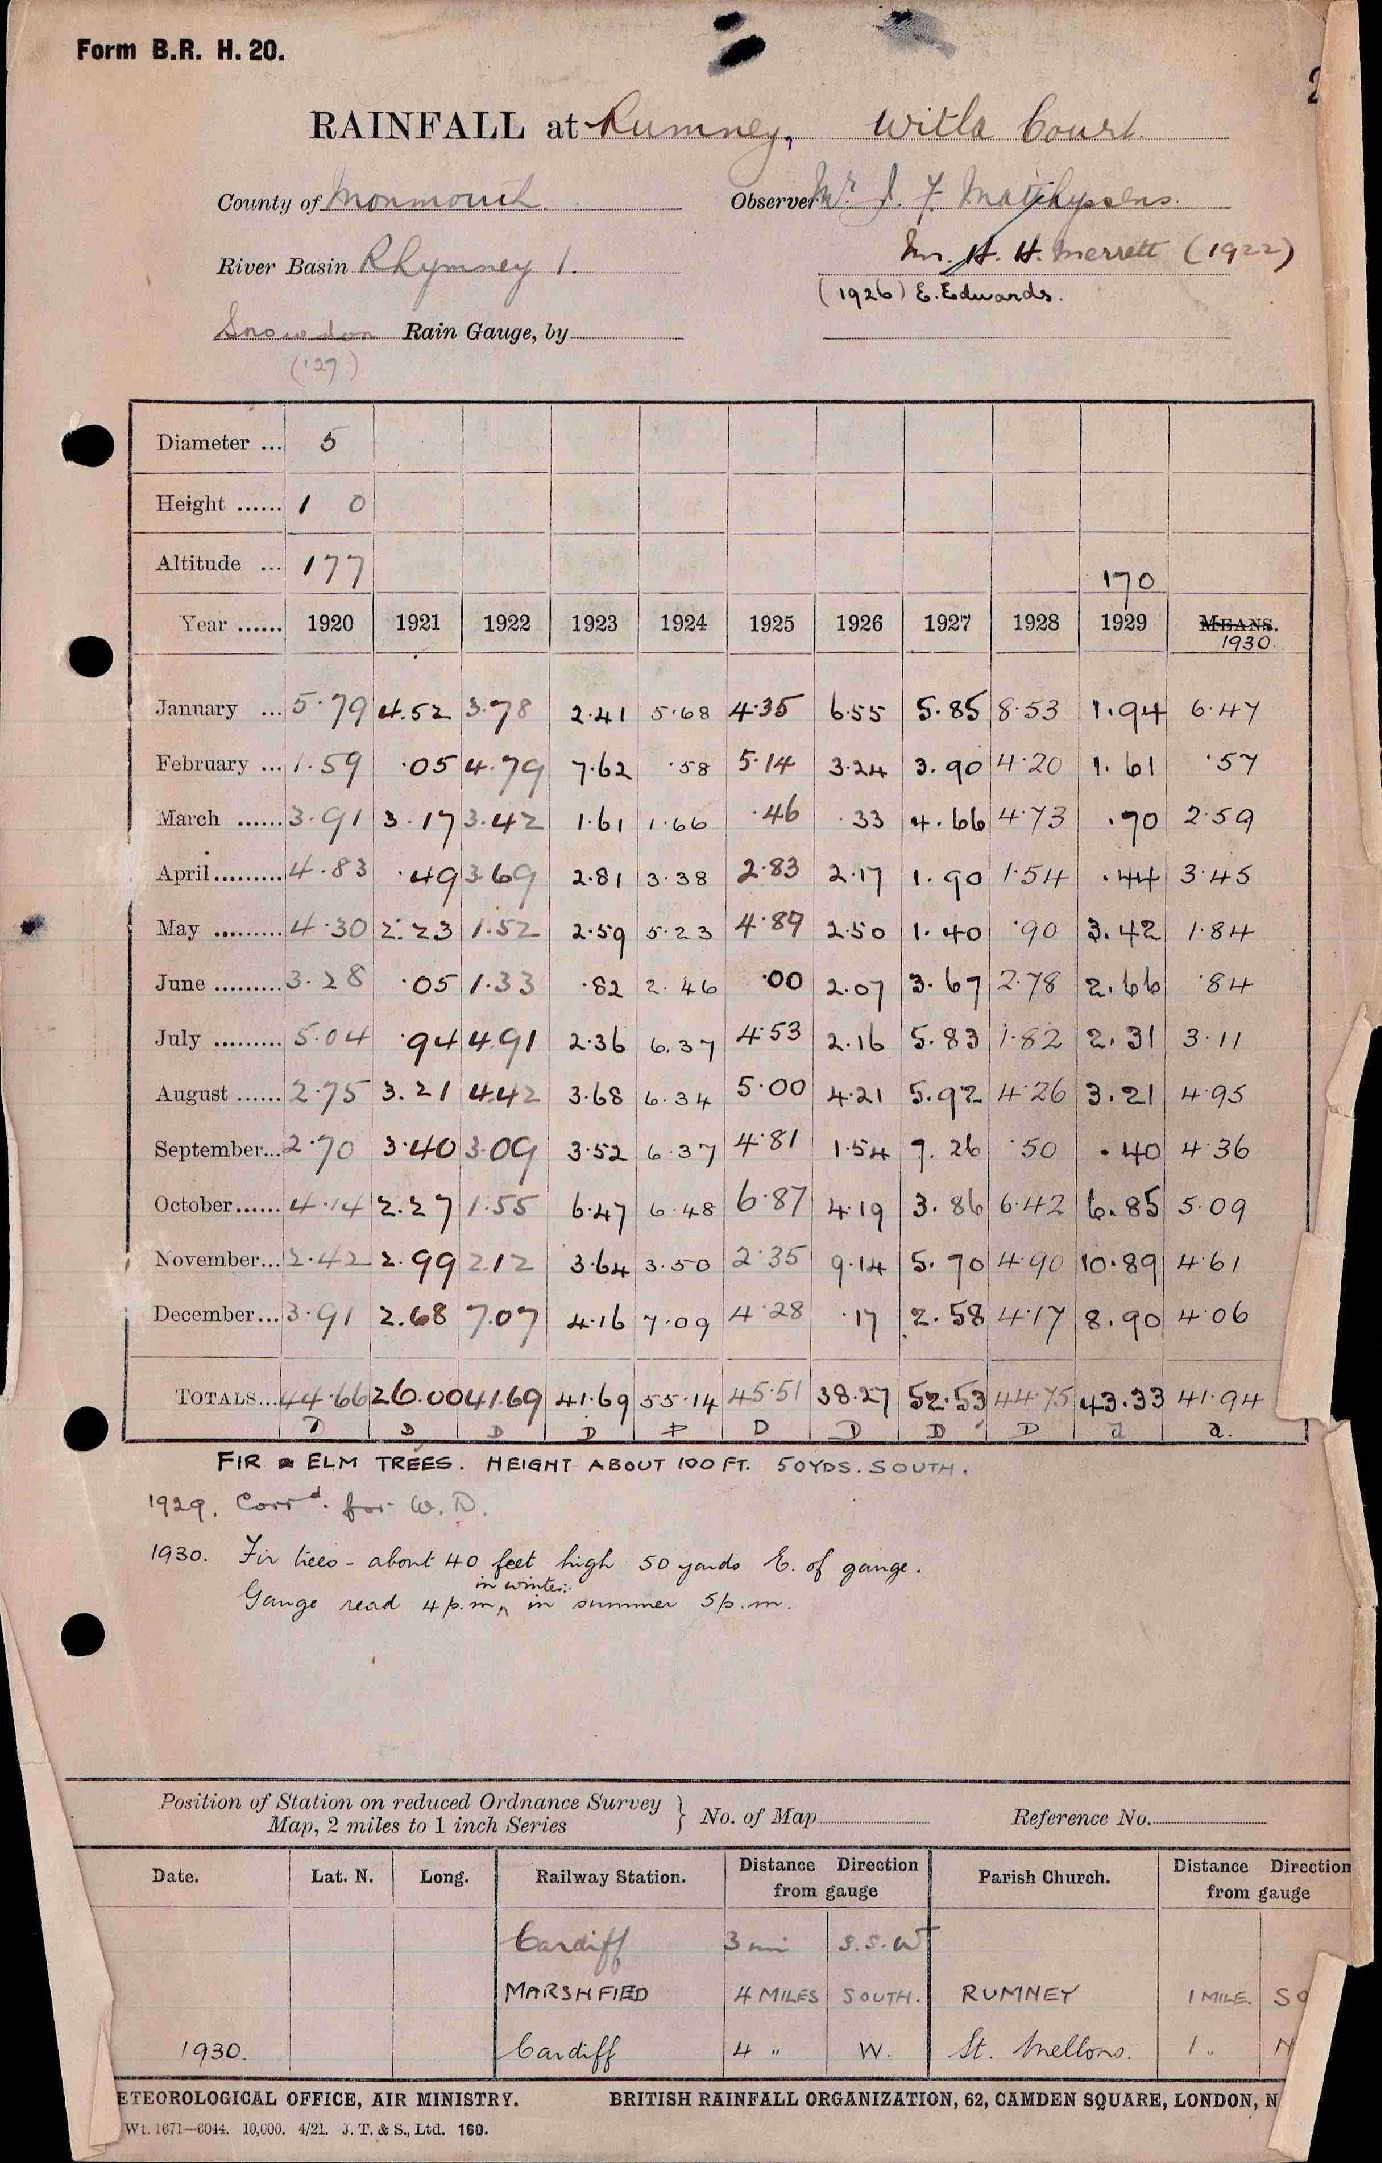 Form B.R. H. 20.
RAINFALL at Rumney, Witla Court.
County of Monmouth Observer Mr J. F. Matthyssens.
Mr. H. H. Merrett (1922)
River Basin Rhymney 1.
(1926) E. Edwards.
Snowdon Rain Gauge, by
('27)
Diameter ... 5
Height ...... 1 0
Altitude ... 177 170
Year ...... 1920 1921 1922 1923 1924 1925 1926 1927 1928 1929 MEANS. 1930.
January ... 5.79 4.52 3.78 2.41 5.68 4.35 6.55 5.85 8.53 1.94 6.47
February ... 1.59 .05 4.79 7.62 .58 5.14 3.24 3.90 4.20 1.61 .57
March ...... 3.91 3.17 3.42 1.61 1.66 .46 .33 4.66 4.73 .70 2.59
April ......... 4.83 .49 3.69 2.81 3.38 2.83 2.17 1.90 1.54 .44 3.45
May ......... 4.30 2.23 1.52 2.59 5.23 4.89 2.50 1.40 .90 3.42 1.84
June ......... 3.28 .05 1.33 .82 2.46 .00 2.07 3.67 2.78 2.66 .84
July ......... 5.04 .94 4.91 2.36 6.37 4.53 2.16 5.83 1.82 2.31 3.11
August ...... 2.75 3.21 4.42 3.68 6.34 5.00 4.21 5.92 4.26 3.21 4.95
September... 2.70 3.40 3.09 3.52 6.37 4.81 1.54 7.26 .50 .40 4.36
October ...... 4.14 2.27 1.55 6.47 6.48 6.87 4.19 3.86 6.42 6.85 5.09
November... 2.42 2.99 2.12 3.64 3.50 2.35 9.14 5.70 4.90 10.89 4.61
December ... 3.91 2.68 7.07 4.16 7.09 4.28 .17 2.58 4.17 8.90 4.06
TOTALS... 44.66 26.00 41.69 41.69 55.14 45.51 38.27 52.53 44.75 43.33 41.94
D D D D D D D D D d a.
FIR & ELM TREES. HEIGHT ABOUT 100 FT. 50 YDS. SOUTH.
1929. Corrd. for W.D.
1930. Fir trees - about 40 feet high 50 yards E. of gauge.
in winter:
Gauge read 4 p.m. in summer 5 p.m.
Position of Station on reduced Ordnance Survey Map, 2 miles to 1 inch Series } No. of Map Reference No.
Date. Lat. N. Long. Railway Station. Distance Direction from gauge Parish Church. Distance Direction from gauge
Cardiff 3 mi S.S.W
MARSHFIED 4 MILES SOUTH. RUMNEY 1 MILE. SO
1930. Cardiff 4 " W. St. Mellons. 1 " N
ETEOROLOGICAL OFFICE, AIR MINISTRY. BRITISH RAINFALL ORGANIZATION, 62, CAMDEN SQUARE, LONDON, N
Wt. 1671—6044. 10,000. 4/21. J. T. & S., Ltd. 160.